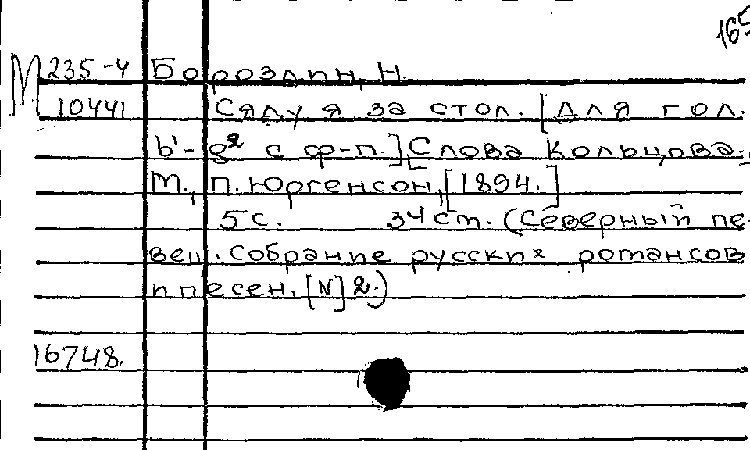 165
М 235-4 Бороздин, Н.
10441 Сяду я за стол. [Для гол.
b'-g² с ф-п.] Слова Кольцова.
М., П. Юргенсон, [1894.]
5 с. 34 см. (Северный пе-
вец. Собрание русских романсов
и песен. [N] 2.)
16748.